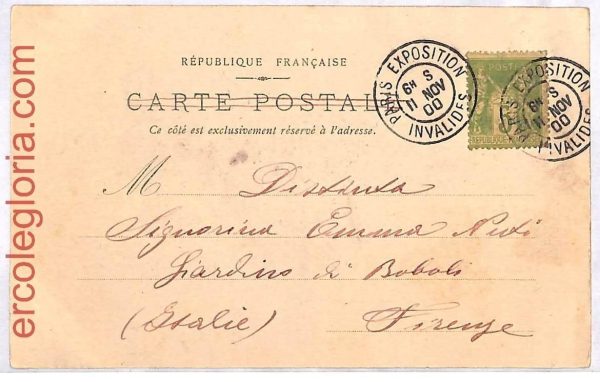 ercolegloria.com
RÉPUBLIQUE FRANÇAISE
CARTE POSTALE
Ce côté est exclusivement réservé à l'adresse.
PARIS EXPOSITION
6H S
11 NOV
00
INVALIDES
POSTES
PARIS EXPOSITION
6H S
11 NOV
00
INVALIDES
M Distinta
Signorina Emma
Giardino di Boboli
(Italie) Firenze